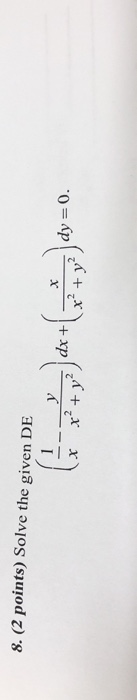 8. (2 points) Solve the given DE
(1/x - y/(x² + y²)) dx + (x/(x² + y²)) dy = 0.